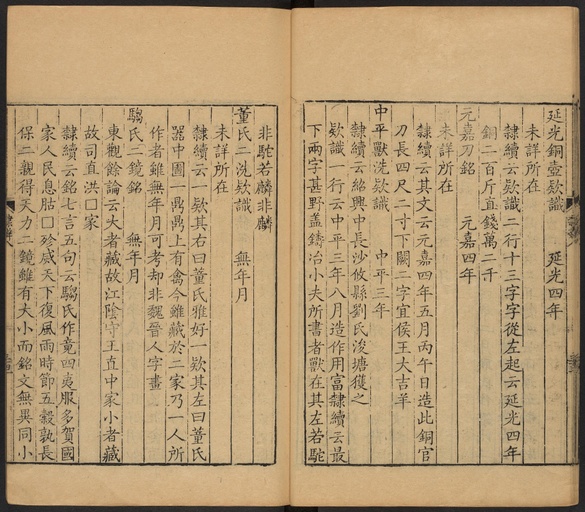 延光銅壺欵識　延光四年
未詳所在
隸續云欵識一行十三字字從左起云延光四年
銅二百斤直錢萬二千
元嘉刀銘　元嘉四年
未詳所在
隸續云其文云元嘉四年五月丙午日造此銅官
刀長四尺二寸下闕二字宜侯王大吉羊
中平獸洗欵識　中平三年
隸續云紹興中長沙攸縣劉氏浚塘獲之
欵識一行云中平三年八月造作用富隸續云最
下兩字甚野蓋鑄冶小夫所書者獸在其左若駝
非駝若麟非麟
董氏二洗欵識　無年月
未詳所在
隸續云一欵其右曰董氏雅好一欵其左曰董氏
器中圖一鼎鼎上有禽今雖藏於二家乃一人所
作者雖無年月可考却非魏晉人字畫
騶氏二鏡銘　無年月
東觀餘論云大者藏故江陰守王直中家小者藏
故司直洪□家
隸續云銘七言五句云騶氏作竟四夷服多賀國
家人民息胡□殄威天下復風雨時節五穀孰長
保二親得天力二鏡雖有大小而銘文無異同小